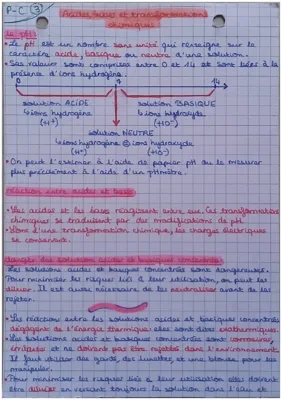 P-C (3)
Acides, bases et transformations
chimiques
Le pH :
• Le pH est un nombre sans unité qui renseigne sur le
caractère acide, basique ou neutre d'une solution.
• Ses valeurs sont comprises entre 0 et 14 et sont liées à la
présence d'ions hydrogène.
0 7 14
solution ACIDE solution BASIQUE
ions hydrogène ions hydroxyde
(H+) (HO-)
solution NEUTRE
ions hydrogène = ions hydroxyde
(H+) (HO-)
• On peut l'estimer à l'aide de papier pH ou le mesurer
plus précisément à l'aide d'un pHmètre.
réaction entre acides et base
• Les acides et les bases réagissent entre eux. Ces transformations
chimiques se traduisent par des modifications de pH.
• Lors d'une transformation chimique, les charges électriques
se conservent.
danger des solution acides et basiques
Les solutions acides et basiques concentrées sont dangereuses.
Pour minimiser les risques liés à leur utilisation, on peut les
diluer. Il est aussi nécessaire de les neutraliser avant de les
rejeter.
• Les réactions entre les solutions acides et basiques concentrées
dégagent de l'énergie thermique : elles sont dites exothermiques.
• Les solutions acides et basiques concentrées sont corrosives,
irritantes et ne doivent pas être rejetées dans l'environnement.
Il faut des gants, des lunettes et une blouse, pour les
manipuler.
• Pour minimiser les risques liés à leur utilisation elles doivent
être diluer en versant toujours la solution dans l'eau et